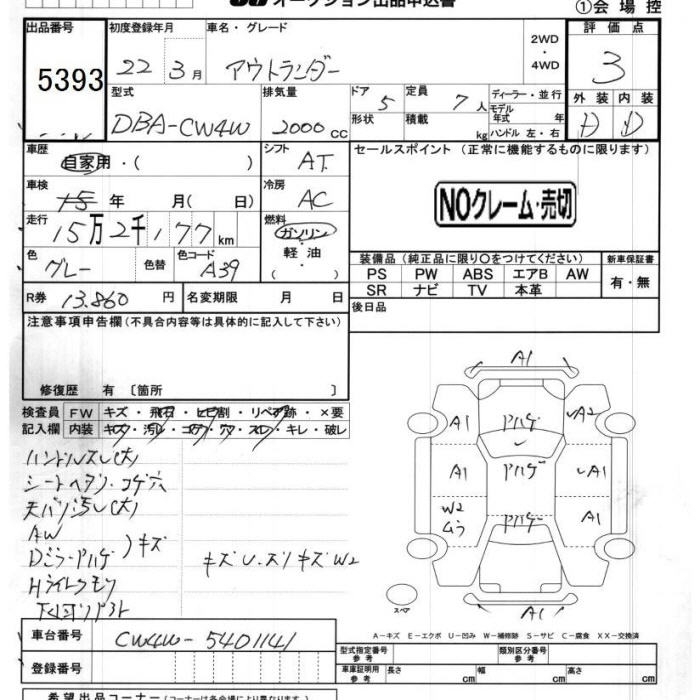 オークション出品申込書
①会場控
出品番号 初度登録年月 車名・グレード 2WD・4WD 評価点
5393 22 3月 アウトランダー 3
型式 排気量 ドア 定員 ディーラー・並行 外装 内装
DBA-CW4W 2000cc 5 7人 モデル年式 年 D D
形状 積載 kg ハンドル 左・右
車歴 自家用・( ) シフト AT セールスポイント (正常に機能するものに限ります)
車検 15年 月( 日) 冷房 AC
NOクレーム・売切
走行 15万2千177km 燃料 ガソリン・軽油・( )
色 グレー 色替 色コード A39
装備品(純正品に限り○をつけてください) 新車保証書
PS PW ABS エアB AW 有・無
SR ナビ TV 本革
R券 13.860円 名変期限 月 日 後日品
注意事項申告欄(不具合内容等は具体的に記入して下さい)
修復歴 有〔箇所 〕
検査員 FW キズ・飛石・ヒビ割・リペア跡・×要
記入欄 内装 キレ・破レ
ハンドルスレ(大)
シートヘタリ・コゲ穴
天バリ汚レ(大)
AW
Dミラー・アハゲ )キズ
キズU.スリキズW2
Hライトクモリ
A1
A1 アハゲ A2
A1 アハゲ A1
W2 ムラ アハゲ A1
A1
スペア
A-キズ E-エクボ U-凹み W-補修跡 S-サビ C-腐食 XX-交換済
車台番号 CW4W-5401141
登録番号
型式指定番号 参考 類別区分番号 参考
車庫証明用 参考 長さ cm 幅 cm 高さ cm
希望出品コーナー(コーナーは各会場により異なります)